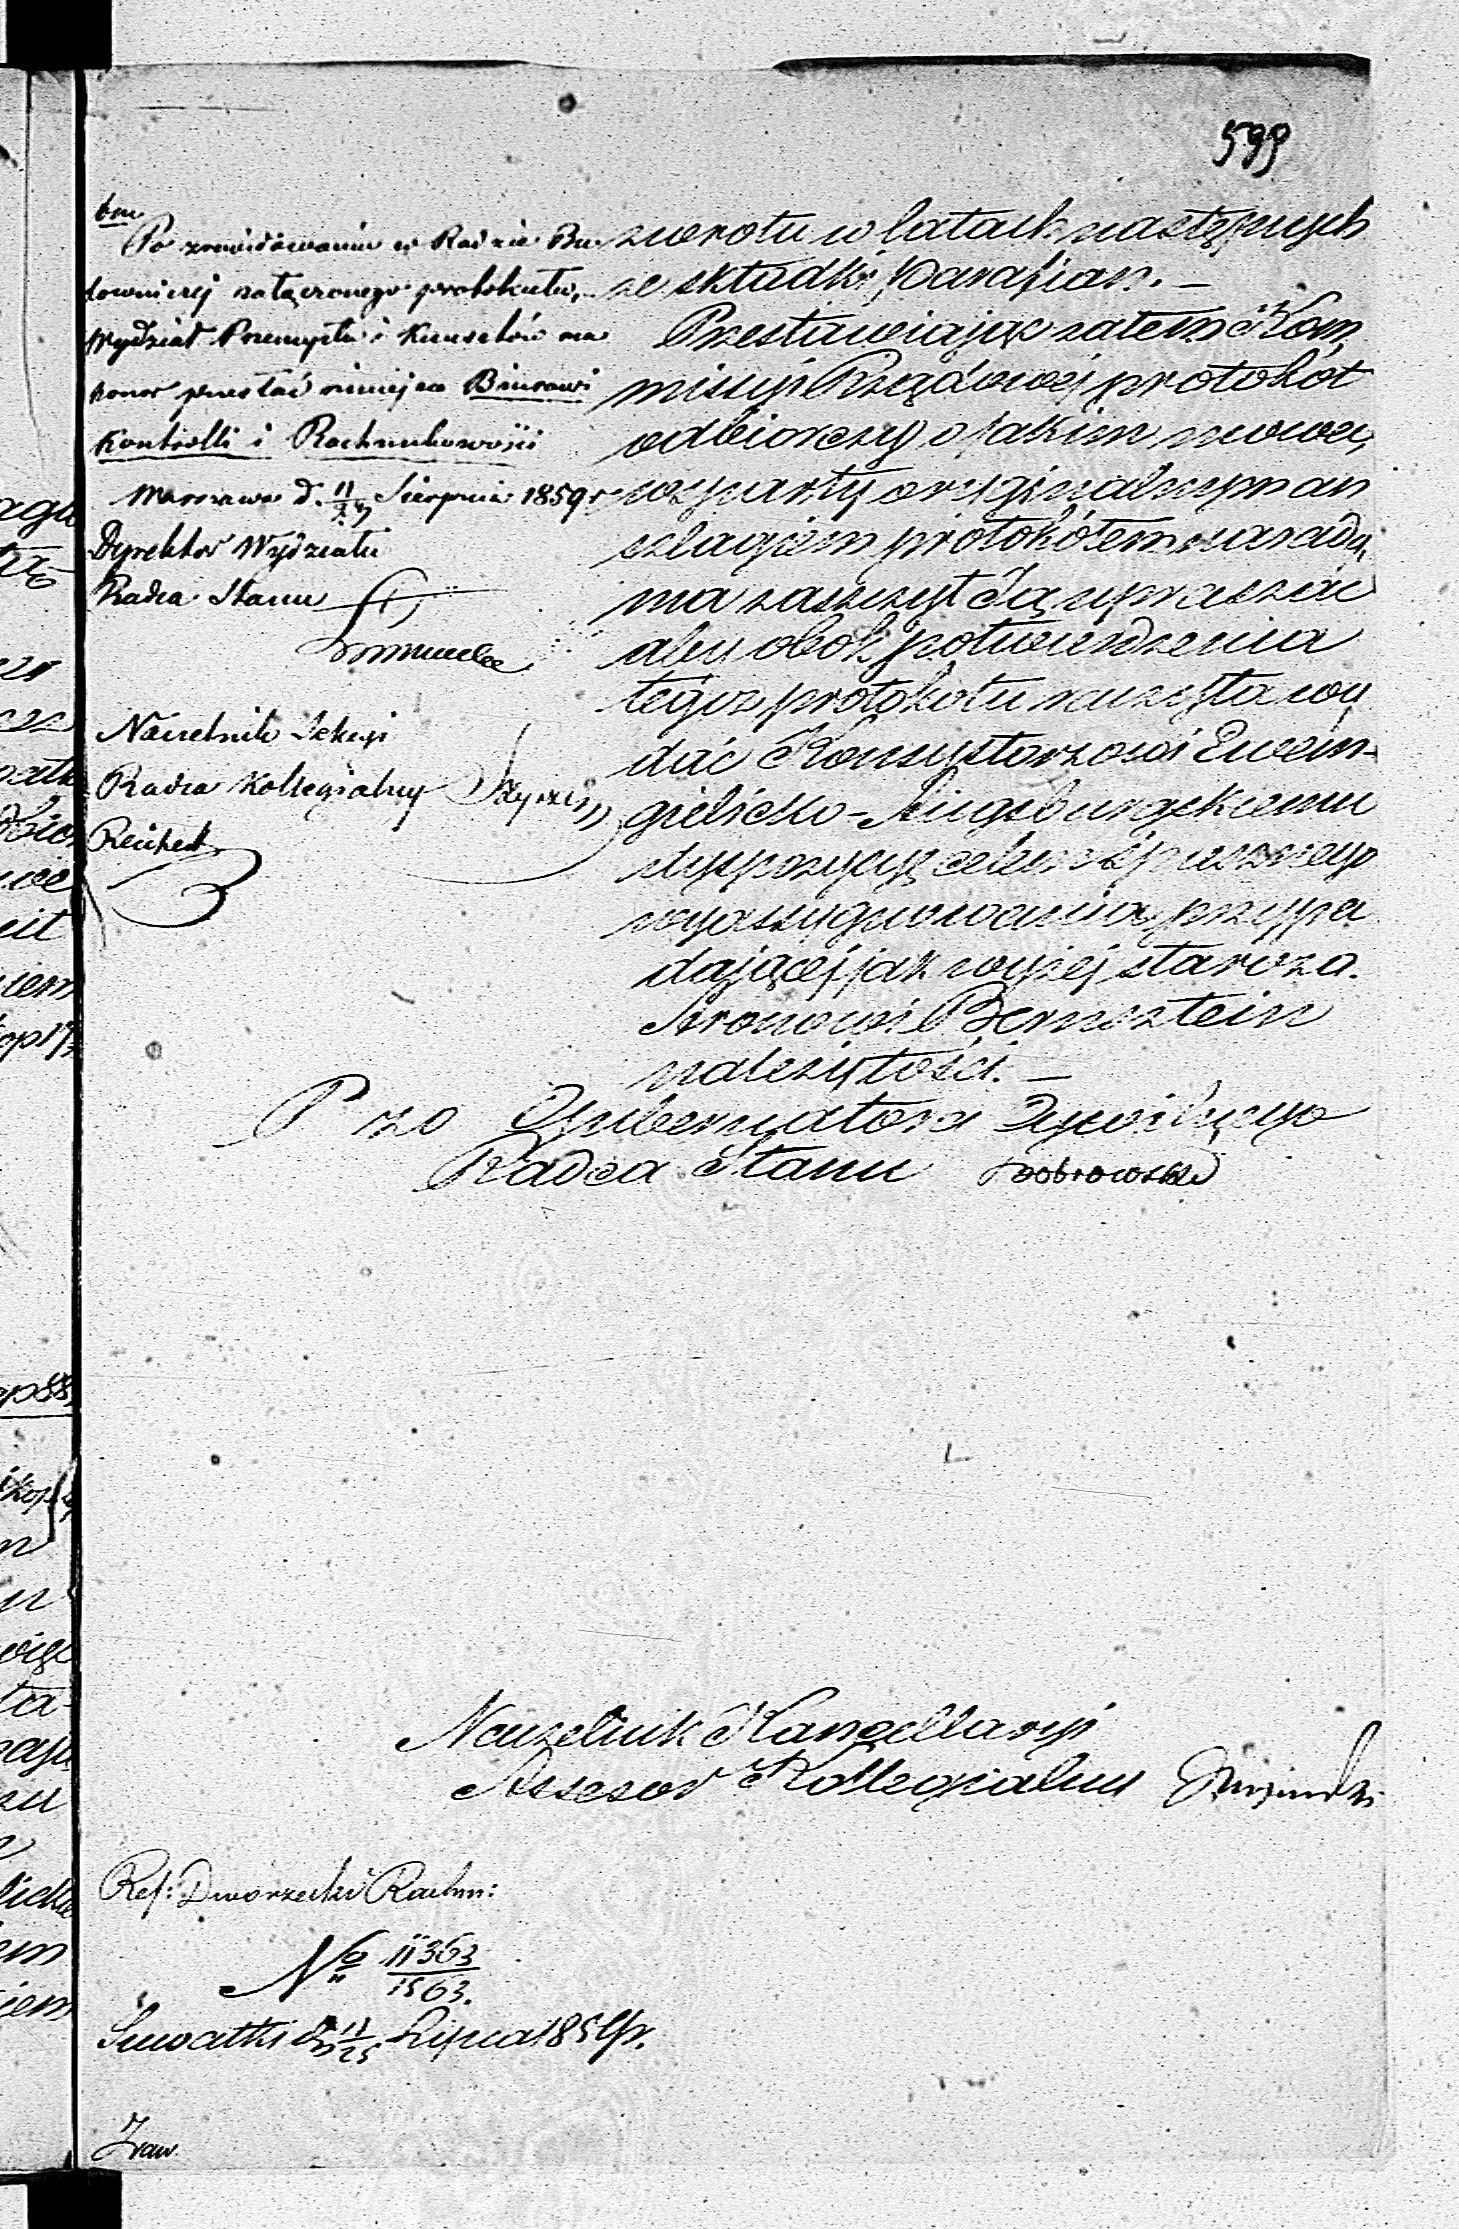 599
bm
Po zrewidowaniu w Radzie Bu-
downiczej załączonego protokółu,
Wydział Przemysłu i Kunsztów ma
honor przesłać niniejsze Biurowi
Kontrolli i Rachunkowości
Warszawa d. 11/23 Sierpnia 1859 r
Dyrektor Wydziału
Radca Stanu
Naczelnik Sekcyi
Radca Kollegialny
Reichert
zwrotu w latach następnych
ze składki parafian. —
Przestawiając zatem Kom
missyi Rządowej protokół
odbiorczy o jakim mowa,
wsparty oryginalnym an
szlagiem protokółem narady,
ma zaszczyt Ją upraszać
aby obok potwierdzenia
tegoż protokołu raczyła wy
dać Konsystorzowi Ewan-
gielicko-Augsburgskiemu
dyspozycyę celem spiesznego
wyasygnowania przypa
dającej jak wyżej staroza.
Aronowi Bernsztein
należytości. —
P zo Gubernatora Cywilnego
Radca Stanu Dobrowolski
Naczelnik Kancellaryi
Assesor Kollegialny
Ref: Dworzecki Rachm:
No 11363/1563.
Suwałki d 13/25 Lipca 1859 r.